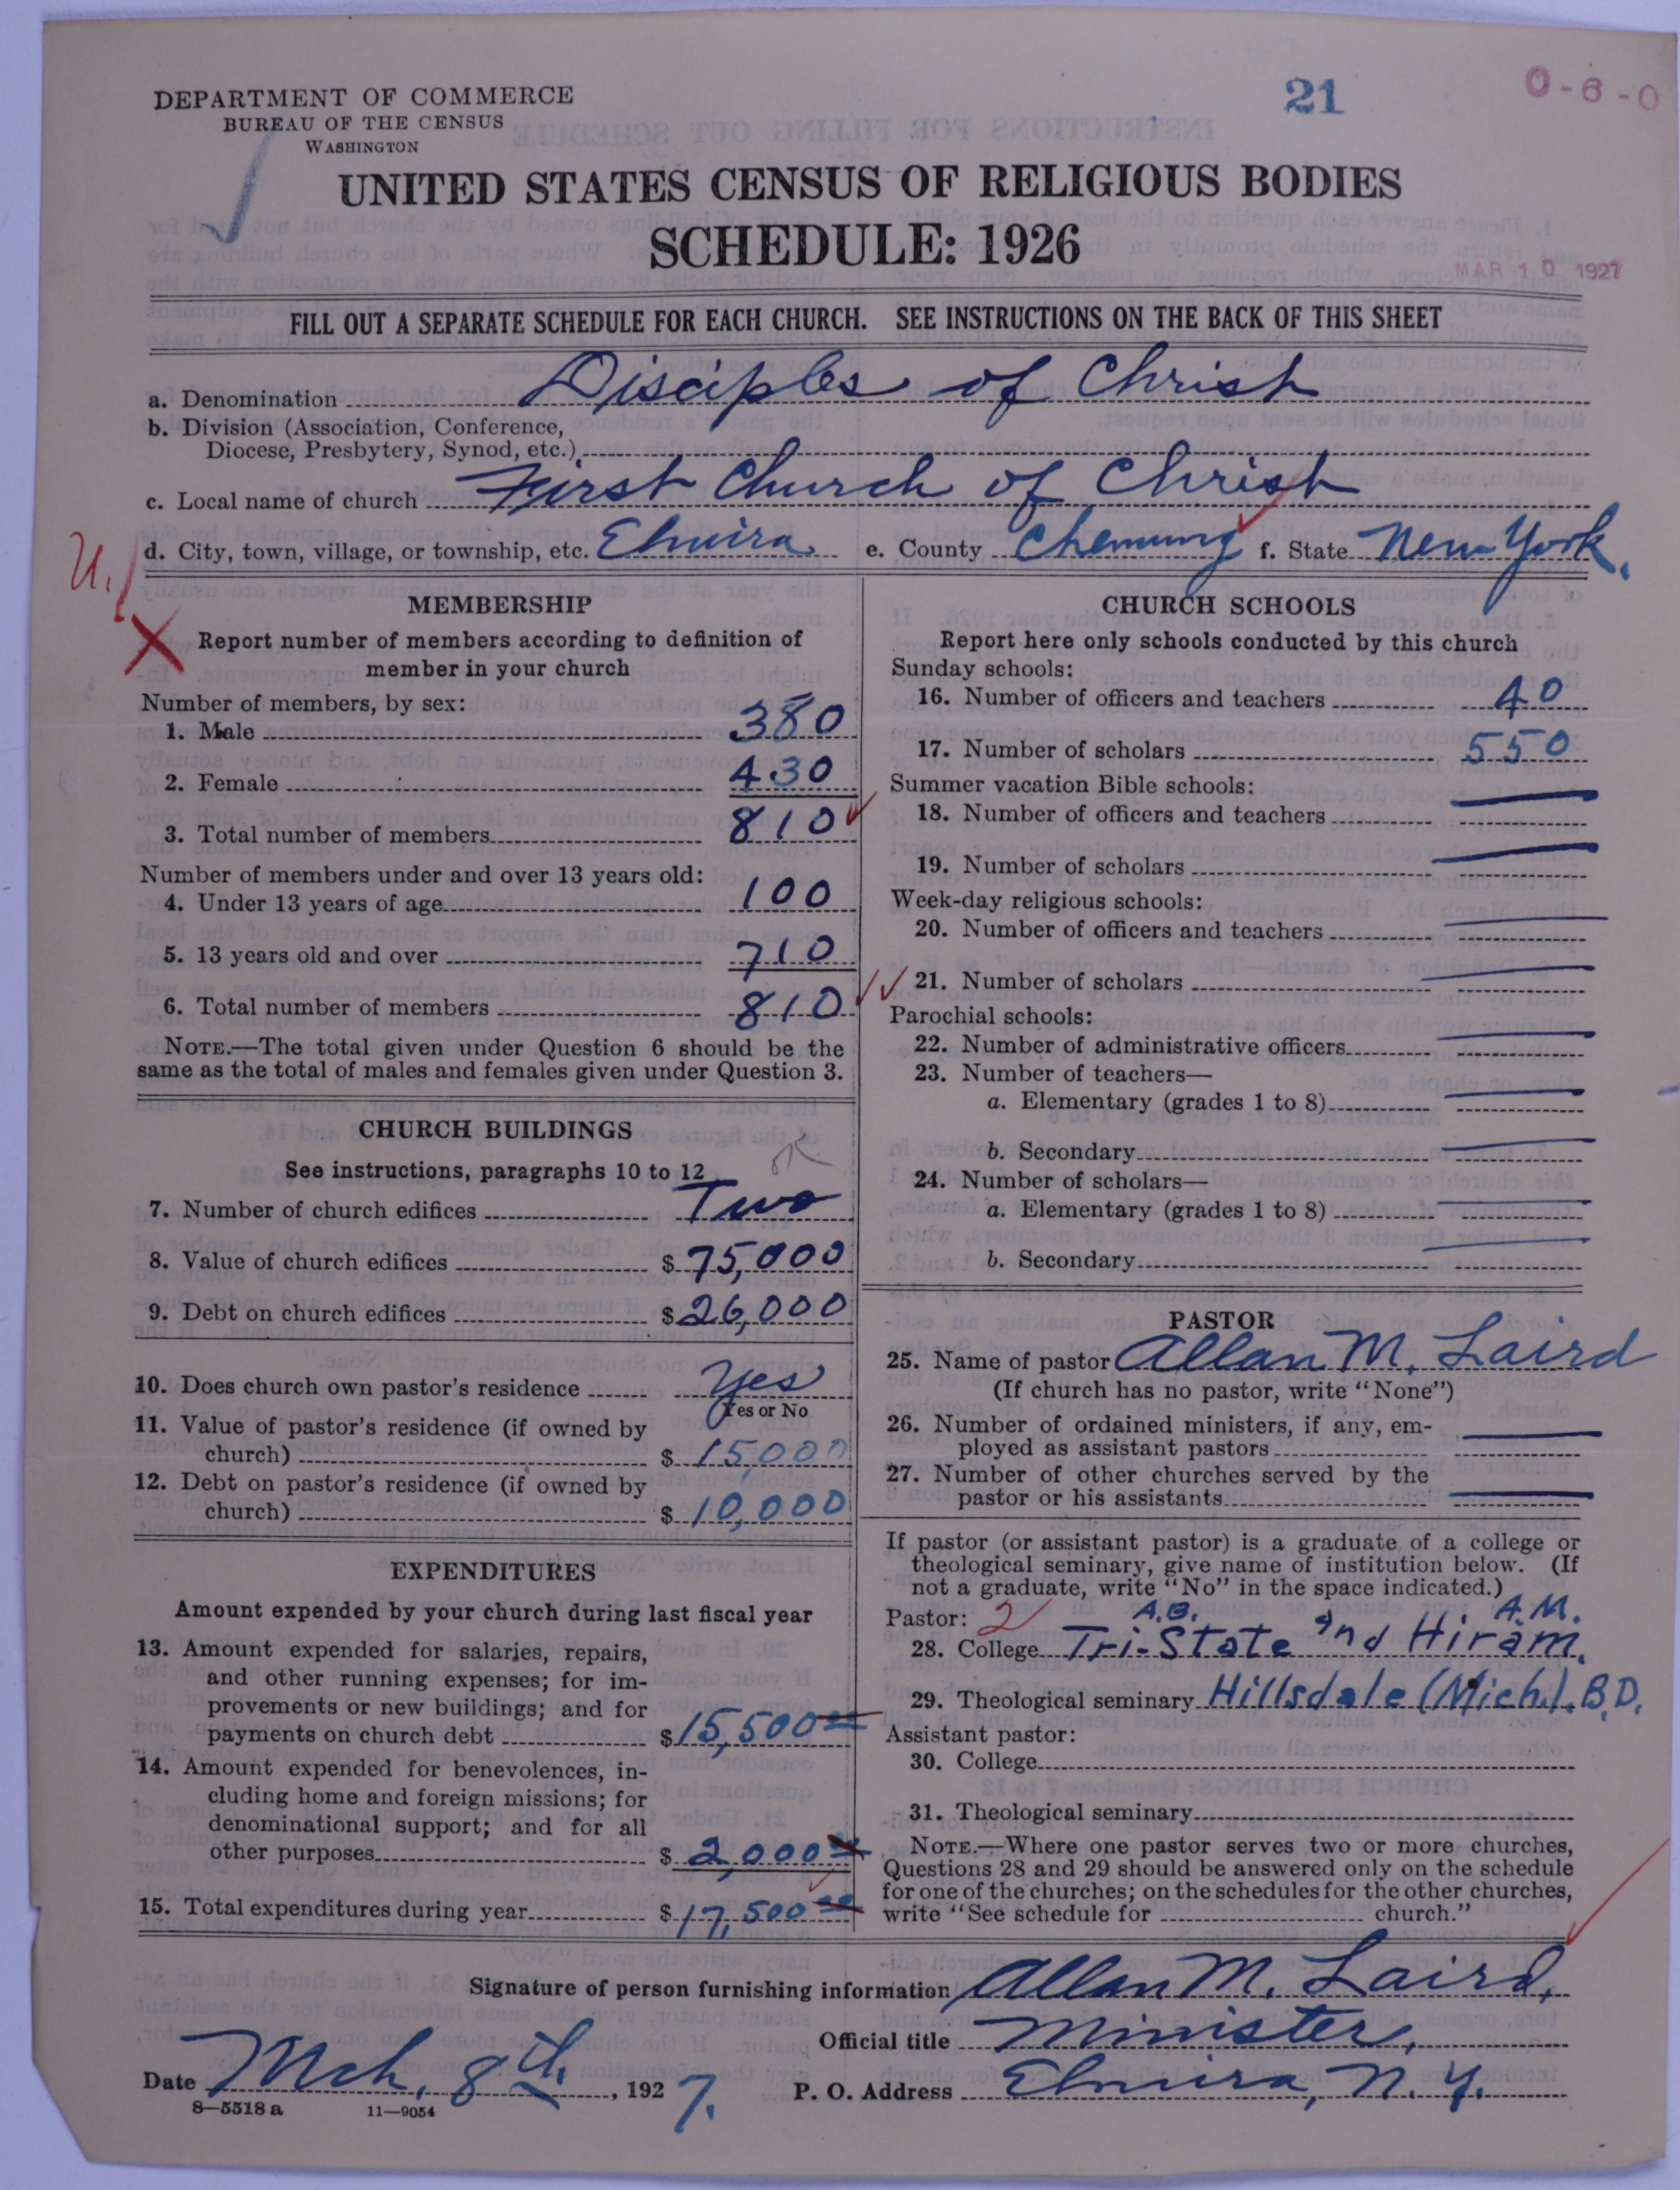 21
0-6-0
DEPARTMENT OF COMMERCE
BUREAU OF THE CENSUS
WASHINGTON
UNITED STATES CENSUS OF RELIGIOUS BODIES
SCHEDULE: 1926
MAR 10 1927
FILL OUT A SEPARATE SCHEDULE FOR EACH CHURCH. SEE INSTRUCTIONS ON THE BACK OF THIS SHEET
a. Denomination Disciples of Christ
b. Division (Association, Conference,
Diocese, Presbytery, Synod, etc.)
c. Local name of church First Church of Christ
d. City, town, village, or township, etc. Elmira e. County Chemung f. State New York.
U.
MEMBERSHIP
Report number of members according to definition of
member in your church
Number of members, by sex:
1. Male 380
2. Female 430
3. Total number of members 810
Number of members under and over 13 years old:
4. Under 13 years of age 100
5. 13 years old and over 710
6. Total number of members 810
NOTE.—The total given under Question 6 should be the
same as the total of males and females given under Question 3.
CHURCH BUILDINGS
See instructions, paragraphs 10 to 12
OK
7. Number of church edifices Two
8. Value of church edifices $ 75,000
9. Debt on church edifices $ 26,000
10. Does church own pastor's residence Yes
Yes or No
11. Value of pastor's residence (if owned by
church) $ 15,000
12. Debt on pastor's residence (if owned by
church) $ 10,000
EXPENDITURES
Amount expended by your church during last fiscal year
13. Amount expended for salaries, repairs,
and other running expenses; for im-
provements or new buildings; and for
payments on church debt $ 15,500 00
14. Amount expended for benevolences, in-
cluding home and foreign missions; for
denominational support; and for all
other purposes $ 2,000 00
15. Total expenditures during year $ 17,500 00
CHURCH SCHOOLS
Report here only schools conducted by this church
Sunday schools:
16. Number of officers and teachers 40
17. Number of scholars 550
Summer vacation Bible schools:
18. Number of officers and teachers
19. Number of scholars
Week-day religious schools:
20. Number of officers and teachers
21. Number of scholars
Parochial schools:
22. Number of administrative officers
23. Number of teachers—
a. Elementary (grades 1 to 8)
b. Secondary
24. Number of scholars—
a. Elementary (grades 1 to 8)
b. Secondary
PASTOR
25. Name of pastor Allan M. Laird
(If church has no pastor, write "None")
26. Number of ordained ministers, if any, em-
ployed as assistant pastors
27. Number of other churches served by the
pastor or his assistants
If pastor (or assistant pastor) is a graduate of a college or
theological seminary, give name of institution below. (If
not a graduate, write "No" in the space indicated.)
Pastor: 2 A.B. A.M.
28. College Tri-State and Hiram.
29. Theological seminary Hillsdale (Mich.). B.D.
Assistant pastor:
30. College
31. Theological seminary
NOTE.—Where one pastor serves two or more churches,
Questions 28 and 29 should be answered only on the schedule
for one of the churches; on the schedules for the other churches,
write "See schedule for church."
Signature of person furnishing information Allan M. Laird,
Official title Minister,
Date Mch. 8th, 1927. P. O. Address Elmira, N.Y.
8—5518 a 11—9054